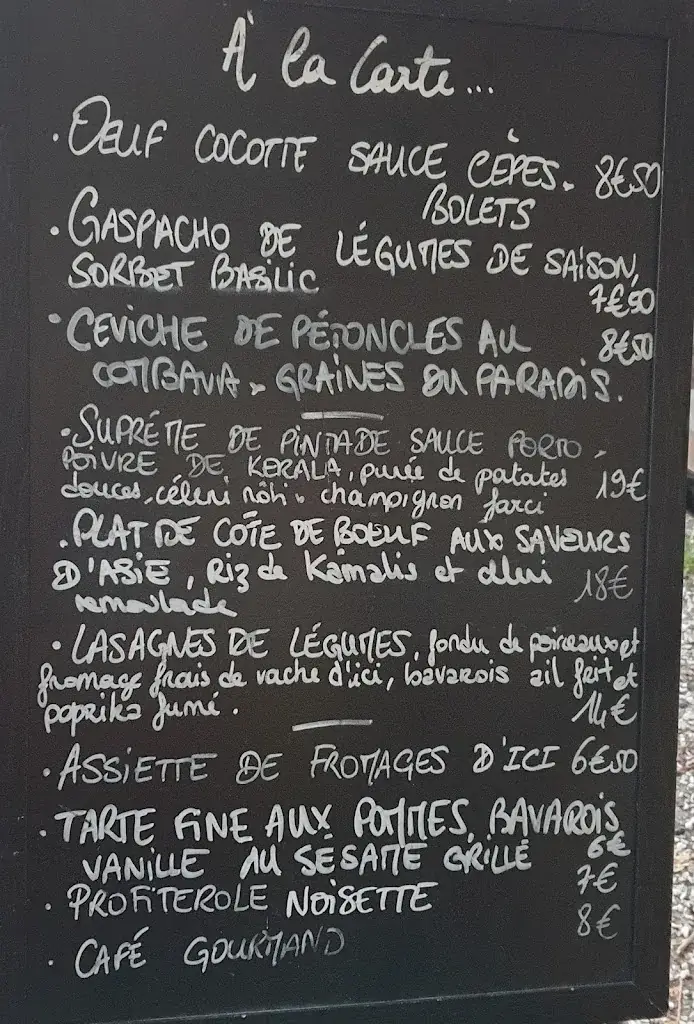 À la Carte...
· OEUF COCOTTE SAUCE CÈPES. 8€50
BOLETS
· GASPACHO DE LÉGUMES DE SAISON,
SORBET BASILIC
7€50
· CEVICHE DE PÉTONCLES AU 8€50
COMBAVA, GRAINES DU PARADIS.
· SUPRÉME DE PINTADE SAUCE PORTO,
POIVRE DE KERALA, purée de patates
douces, céleri rôti, champignon farci 19€
. PLAT DE CÔTE DE BOEUF AUX SAVEURS
D'ASIE, Riz de Kamalis et
remoulade 18€
· LASAGNES DE LÉGUMES, fondu de poireaux et
fromage frais de vache d'ici, bavarois ail et
paprika fumé. 14€
· ASSIETTE DE FROMAGES D'ICI 6€50
· TARTE FINE AUX POMMES, BAVAROIS
VANILLE AU SÉSAME GRILLÉ 6€
· PROFITEROLE NOISETTE 7€
· CAFÉ GOURMAND 8€